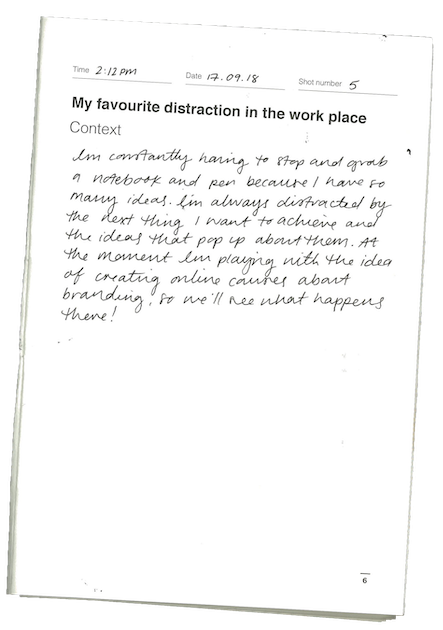 Time 2:12PM Date 17.09.18 Shot number 5
My favourite distraction in the work place
Context
Im constantly having to stop and grab
a notebook and pen because I have so
many ideas. Im always distracted by
the next thing I want to achieve and
the ideas that pop up about them. At
the moment Im playing with the idea
of creating online courses about
branding, so we'll see what happens
there!
6